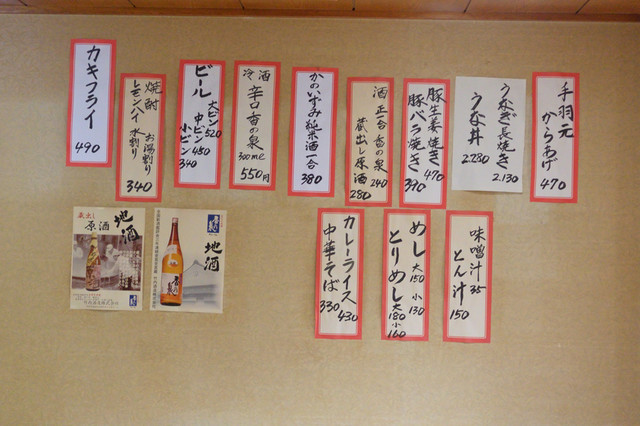 手羽元
からあげ
470
うなぎ長焼き
2.130
うな丼
2.280
豚生姜焼き
470
豚バラ焼き
390
酒 正一合 香の泉
240
蔵出し原酒
280
かのいずみ純米酒一合
380
冷酒
辛口 香の泉
300ml
550円
ビール
大ビン520
中ビン450
小ビン
340
焼酎
お湯割り
レモンハイ 水割り
340
カキフライ
490
味噌汁 35
とん汁
150
めし 大150 小130
とりめし 大180 小160
カレーライス
430
中華そば
330
地酒
地酒
蔵出し
原酒